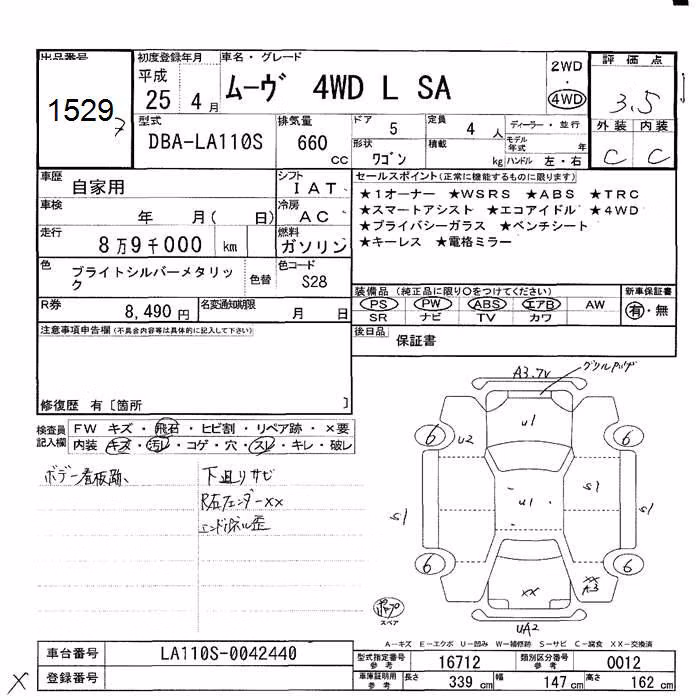 出品番号 初度登録年月 車名・グレード 2WD ・ 4WD 評価点
1529 平成 25 4月 ムーヴ 4WD L SA 3.5
7
外装 内装
C C
型式 DBA-LA110S 排気量 660 cc ドア 5 定員 4 人 ディーラー・並行
形状 ワゴン 積載 kg モデル年式 年 ハンドル 左・右
車歴 自家用 シフト IAT セールスポイント(正常に機能するものに限ります)
車検 年 月( 日) 冷房 AC
走行 8万9千000 km 燃料 ガソリン
★1オーナー ★WSRS ★ABS ★TRC
★スマートアシスト ★エコアイドル ★4WD
★プライバシーガラス ★ベンチシート
★キーレス ★電格ミラー
色 ブライトシルバーメタリック 色替 色コード S28
R券 8,490 円 名変通知期限 月 日
装備品(純正品に限り○をつけてください) 新車保証書
PS PW ABS エアB AW 有・無
SR ナビ TV カワ
後日品 保証書
注意事項申告欄(不具合内容等は具体的に記入して下さい)
修復歴 有〔箇所 〕
検査員記入欄 FW キズ・飛石・ヒビ割・リペア跡・×要
内装・キズ・汚レ・コゲ・穴・スレ・キレ・破レ
ボデー看板跡、
下廻りサビ
R右フェンダーXX
エンドパネル歪
A3.7V
u1
6 u2 6
S1 u1 S1
6 6
XX XX A3
UA2
スペア
A-キズ E-エクボ U-凹み W-補修跡 S-サビ C-腐食 XX-交換済
車台番号 LA110S-0042440
登録番号
型式指定番号 参考 16712 類別区分番号 参考 0012
車庫証明用 参考 長さ 339 cm 幅 147 cm 高さ 162 cm
X